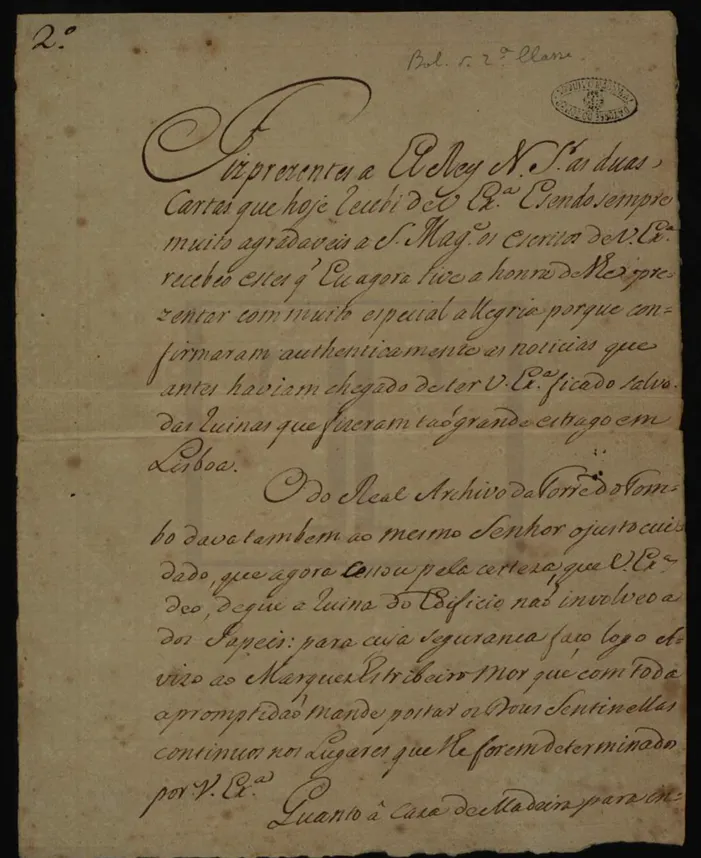 2.º
Bol. 5. 2.ª Classe.
Fiz prezentes a El Rey N. S.r as duas
Cartas que hoje recebi de V. Ex.ª E sendo sempre
muito agradaveis a S. Mag.e os escritos de V. Ex.ª
recebeo estes q' Eu agora tive a honra de lhe repre-
zentar com muito especial allegria porque con-
firmaram authenticamente as noticias que
antes haviam chegado de ter V. Ex.ª ficado salvo
das ruinas que fizeram taõ grande estrago em
Lisboa.
O do Real Archivo da Torre do Tom-
bo dava tambem ao mesmo Senhor o justo cui-
dado, que agora cessou pela certeza, que V. Ex.ª
deo, de que a ruina do Edificio naõ involveo a
dos Papeis: para cuja segurança faço logo A-
vizo ao Marquez Estribeiro Mor que com toda
a promptidaõ mande postar os Dous Sentinellas
continuos nos Lugares que lhe forem determinados
por V. Ex.ª
Quanto â Caza de Madeira para en-